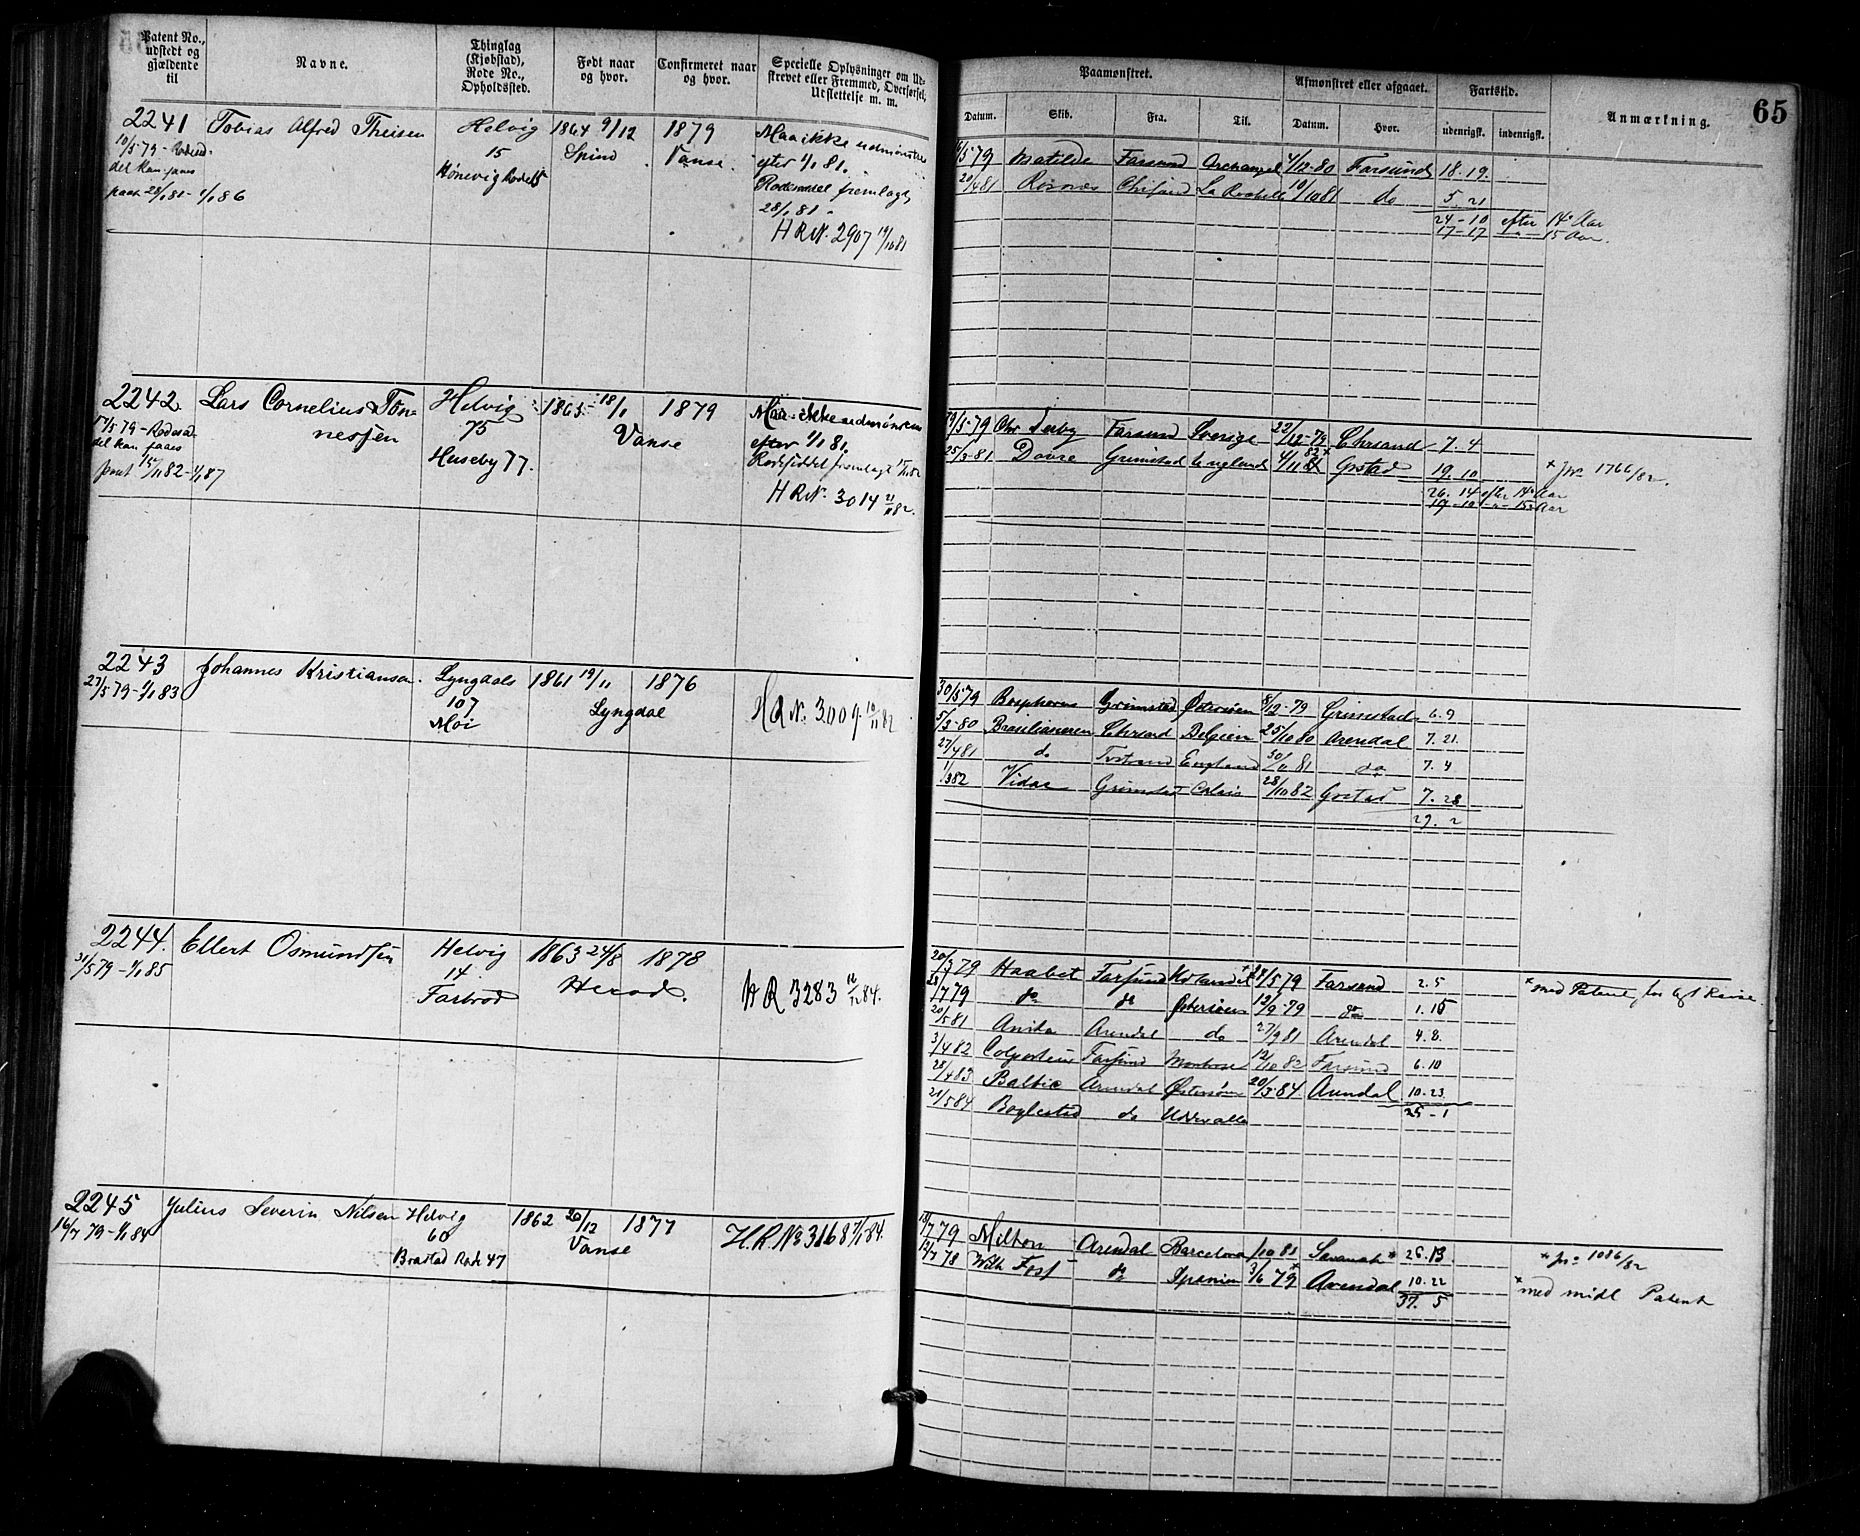 Patent No., udstedt og gjældende til
Navne.
Thinglag (Kjøbstad), Rode No., Opholdssted.
Født naar og hvor.
Confirmeret naar og hvor.
Specielle Oplysninger om Udstrevet eller Fremmed, Overførsel, Udslettelse m. m.
Paamønstret.
Afmønstret eller afgaaet.
Fartstid.
Anmærkning.
65
Datum.
Skib.
Fra.
Til.
Datum.
Hvor.
udenrigsk.
indenrigsk.
2241 Tobias Alfred Theisen Helvig 1864 9/12 1879 Maa ikke udmønstres
10/5 79 - 15 Spind Vanse. efter 1/1 81.
del kan paaes Hønevig
paat 28/1 81 - 1/1 86 28/1 81 -
H R N. 2907 19/10 81
79 Matilde Farsund Archangel 4/12 80 Farsund 18. 19.
20/4 81 La Rochelle 10/10 81 do 5. 21
24-10 efter 14 Aar
17-17 -"- 15 Aar.
2242. Lars Cornelius Tøn- Helvig 1865 18/1 1879 Maa ikke udmønstres
17/5 79 - nessen 75 Vanse efter 1/1 81.
del kan paaes Huseby 77.
paat 82 - 1/1 87 H R N. 3014 21/11 82.
5 79 Farsund Sverige 22/12 79 Chrsand 7. 4
25/3 81 Dovre Grimstad England 4/11 82 Grstad 19. 10 * jr. 1766/82.
26. 14 efter 14 Aar
19-10 -"- 15 Aar
2243 Johannes Kristiansen. Lyngdals 1861 19/11 1876
27/5 79 - 1/1 83 107 Lyngdal H R N. 3009 82
Møi
30/5 79 Bosphorus Grimstad Østersøen 8/12 79 Grimstad 6. 9
5/3 80 Brasilianeren Chrsand Belgien 25/10 80 Arendal 7. 21.
27/4 81 do Tvstrand England 30/11 81 do 7. 4
1/3 82 Vidar Grimstad Calais 28/10 82 Grstad 7. 28
29. 2
2244. Ellert Osmundsen Helvig 1863 24/8 1878
31/5 79 - 1/1 85 14 Herod. H R 3283 12/12 84.
Farbrod
20/3 79 Haabet Farsund 5 79 Farsund 2. 5 * med Patent for
28/7 79 do do Østersøen 12/9 79 do 1. 15
20/5 81 Anita Arendal do 27/9 81 Arendal 4. 8.
3/4 82 Farsund Montrose 12/10 82 Farsund 6. 10
25/4 83 Baltic Arendal Østersøen 20/3 84 Arendal 10. 23
21/5 84 do Uddevalla 25-1
2245 Julius Severin Nilsen Helvig 1862 26/12 1877 H. R. No 3168 7/1 84.
16/7 79 - 1/1 84 60 Vanse
Brastad Rode 47
18/7 79 Milton Arendal Barcelona /10 81 Savanah * 26. 13. * jr. 1086/82
78 Wilh Foss do Spanien 3/6 79 * Arendal 10. 22 * med midl Patent
37. 5